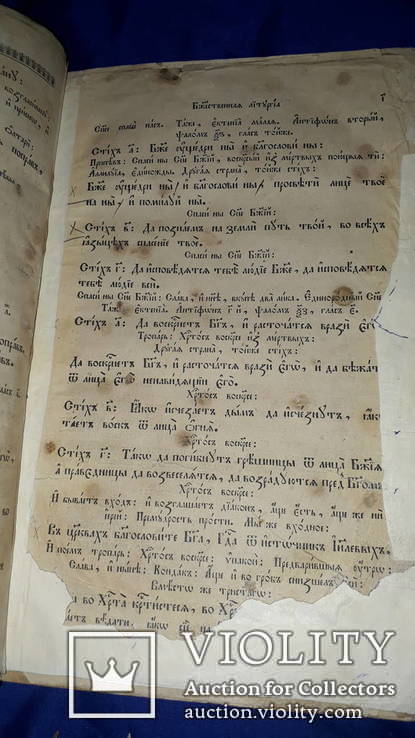 Бж҃ественнаѧ лїтꙋргїа
Сп҃си самѣй насъ. Таже, єктенїа малаѧ. Антїфѡнъ вторый,
ѱаломъ ѯ҃ѕ, гласъ тойже.
Стїхъ а҃: Бж҃е ᲂущедри ны̀ и҆ благослови ны̀:
Припѣвъ: Спаси ны̀ Сн҃е Бж҃їй, воскресый и҆з̾ мертвыхъ поющыѧ ти:
Аллилꙋїа, є҆диножды. Дрꙋгаѧ страна, тойже стїхъ:
Бж҃е ᲂущедри ны̀, и҆ благослови ны̀, просвѣти лицѐ твоѐ
на ны̀, и҆ помилꙋй ны̀.
Спаси ны̀ Сн҃е Бж҃їй:
Стїхъ в҃: Да познаемъ на земли пꙋть твой, во всѣхъ
ꙗ҆зыцѣхъ спасенїе твоѐ.
Спаси ны̀ Сн҃е Бж҃їй:
Стїхъ г҃: Да и҆сповѣдѧтсѧ тебѣ людїе Бж҃е, да и҆сповѣдѧтсѧ
тебѣ людїе вси.
Спаси ны̀ Сн҃е Бж҃їй: Слава, и҆ нн҃ѣ, вкꙋпѣ два лика. Є҆динородный Сн҃е
Таже, є҆ктенїа. Антїфѡнъ г҃ й, ѱаломъ ѯ҃з, гласъ є҃.
Стїхъ а҃: Да воскреснетъ Бг҃ъ, и҆ расточатсѧ врази є҆гѡ̀
Тропарь: Хрⷭ҇тосъ воскресе и҆з̾ мертвыхъ:
Дрꙋгаѧ страна, тойже стїхъ:
Да воскреснетъ Бг҃ъ, и҆ расточатсѧ врази є҆гѡ̀, и҆ да бѣжатъ
ѿ лица є҆гѡ̀ ненавидѧщїи є҆го̀.
Хрⷭ҇тосъ воскресе:
Стїхъ в҃: Ꙗ҆кѡ и҆счезаетъ дымъ да и҆счезнꙋтъ, ꙗ҆кѡ
таетъ воскъ ѿ лица ѻ҆гнѧ.
Хрⷭ҇тосъ воскресе:
Стїхъ г҃: Такѡ да погибнꙋтъ грѣшницы ѿ лица Бж҃їѧ
а҆ праведницы да возвеселѧтсѧ, да возрадꙋютсѧ пред̾ Бг҃омъ
Хрⷭ҇тосъ воскресе:
И҆ бываетъ входъ: и҆ возглашаетъ дїаконъ, а҆ще є҆сть, а҆ще же ни
і҆ерей: Премꙋдрость прости. Мы же входное:
Въ церквахъ благословите Бг҃а, Гд҇а ѿ и҆стѡчникъ І҆и҃левыхъ.
И҆ поемъ тропарь: Хрⷭ҇тосъ воскресе: ѵ҆пакой: Предварившыѧ ᲂутро:
Слава, и҆ нынѣ: Кондакъ: А҆ще и҆ во гробъ снизшелъ
Вмѣстѡ же трист҃агѡ:
во Хрⷭ҇та крⷭ҇тистесѧ, во Хр
VIOLITY
Auction for Collectors
auction.violity.com